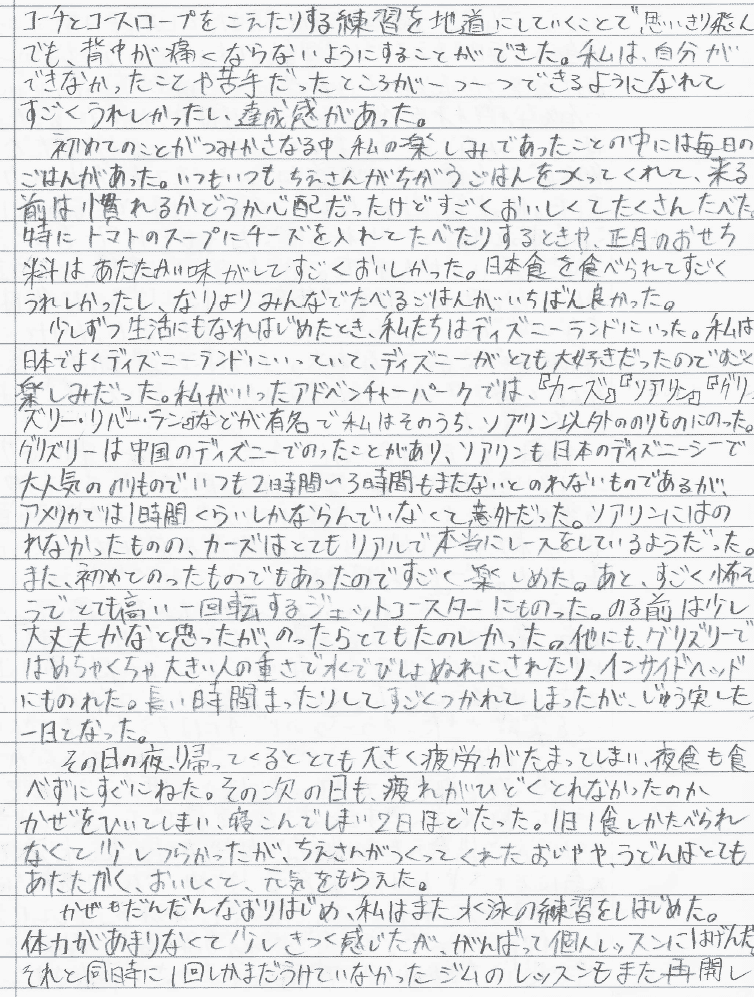 コーチとコースロープをこえたりする練習を地道にしていくことで"思いきり飛ん
でも、背中が痛くならないようにすることができた。私は、自分が
できなかったことや苦手だったところが一つ一つできるようになれて
すごくうれしかったし、達成感があった。
初めてのことがつみかさなる中、私の楽しみであったことの中には毎日の
ごはんがあった。いつもいつも、ちえさんがちがうごはんをつくってくれて、来る
前は慣れるかどうか心配だったけどすごくおいしくてたくさんたべた。
特にトマトのスープにチーズを入れてたべたりするときや、正月のおせち
料はあたたかい味がしてすごくおいしかった。日本食を食べられてすごく
うれしかったし、なりよりみんなでたべるごはんがいちばん良かった。
少しずつ生活にもなれはじめたとき、私たちはディズニーランドにいった。私は
日本でよくディズニーランドにいっていて、ディズニーがとても大好きだったのですごく
楽しみだった。私がいったアドベンチャーパークでは、『カーズ』『ソアリン』『グリ
ズリー・リバー・ラン』などが有名で私はそのうち、ソアリン以外ののりものにのった。
グリズリーは中国のディズニーでのったことがあり、ソアリンも日本のディズニーシーで
大人気ののりものでいつも2時間〜3時間もまたないとのれないものであるが、
アメリカでは1時間くらいしかならんでいなくて意外だった。ソアリンにはの
れなかったものの、カーズはとてもリアルで本当にレースをしているようだった。
また、初めてのったものでもあったのですごく楽しめた。あと、すごく怖そ
うでとても高い一回転するジェットコースターにものった。のる前は少し
大丈夫かなと思ったが、のったらとてもたのしかった。他にも、グリズリーで
はめちゃくちゃ大きい人の重さで水でびしょぬれにされたり、インサイドヘッド
にものれた。長い時間まったりしてすごくつかれてしまったが、じゅう実した
一日となった。
その日の夜、帰ってくるととても大きく疲労がたまってしまい、夜食も食
べずにすぐにねた。その次の日も、疲れがひどくとれなかったのか
かぜをひいてしまい、寝こんでしまい2日ほどたった。1日1食しかたべられ
なくて少しつらかったが、ちえさんがつくってくれたおじやや、うどんはとても
あたたかく、おいしくて、元気をもらえた。
かぜもだんだんなおりはじめ、私はまた水泳の練習をしはじめた。
体力があまりなくて少しきつく感じたが、がんばって個人レッスンにはげんだ。
それと同時に1回しかまだうけていなかったジムのレッスンもまた再開し